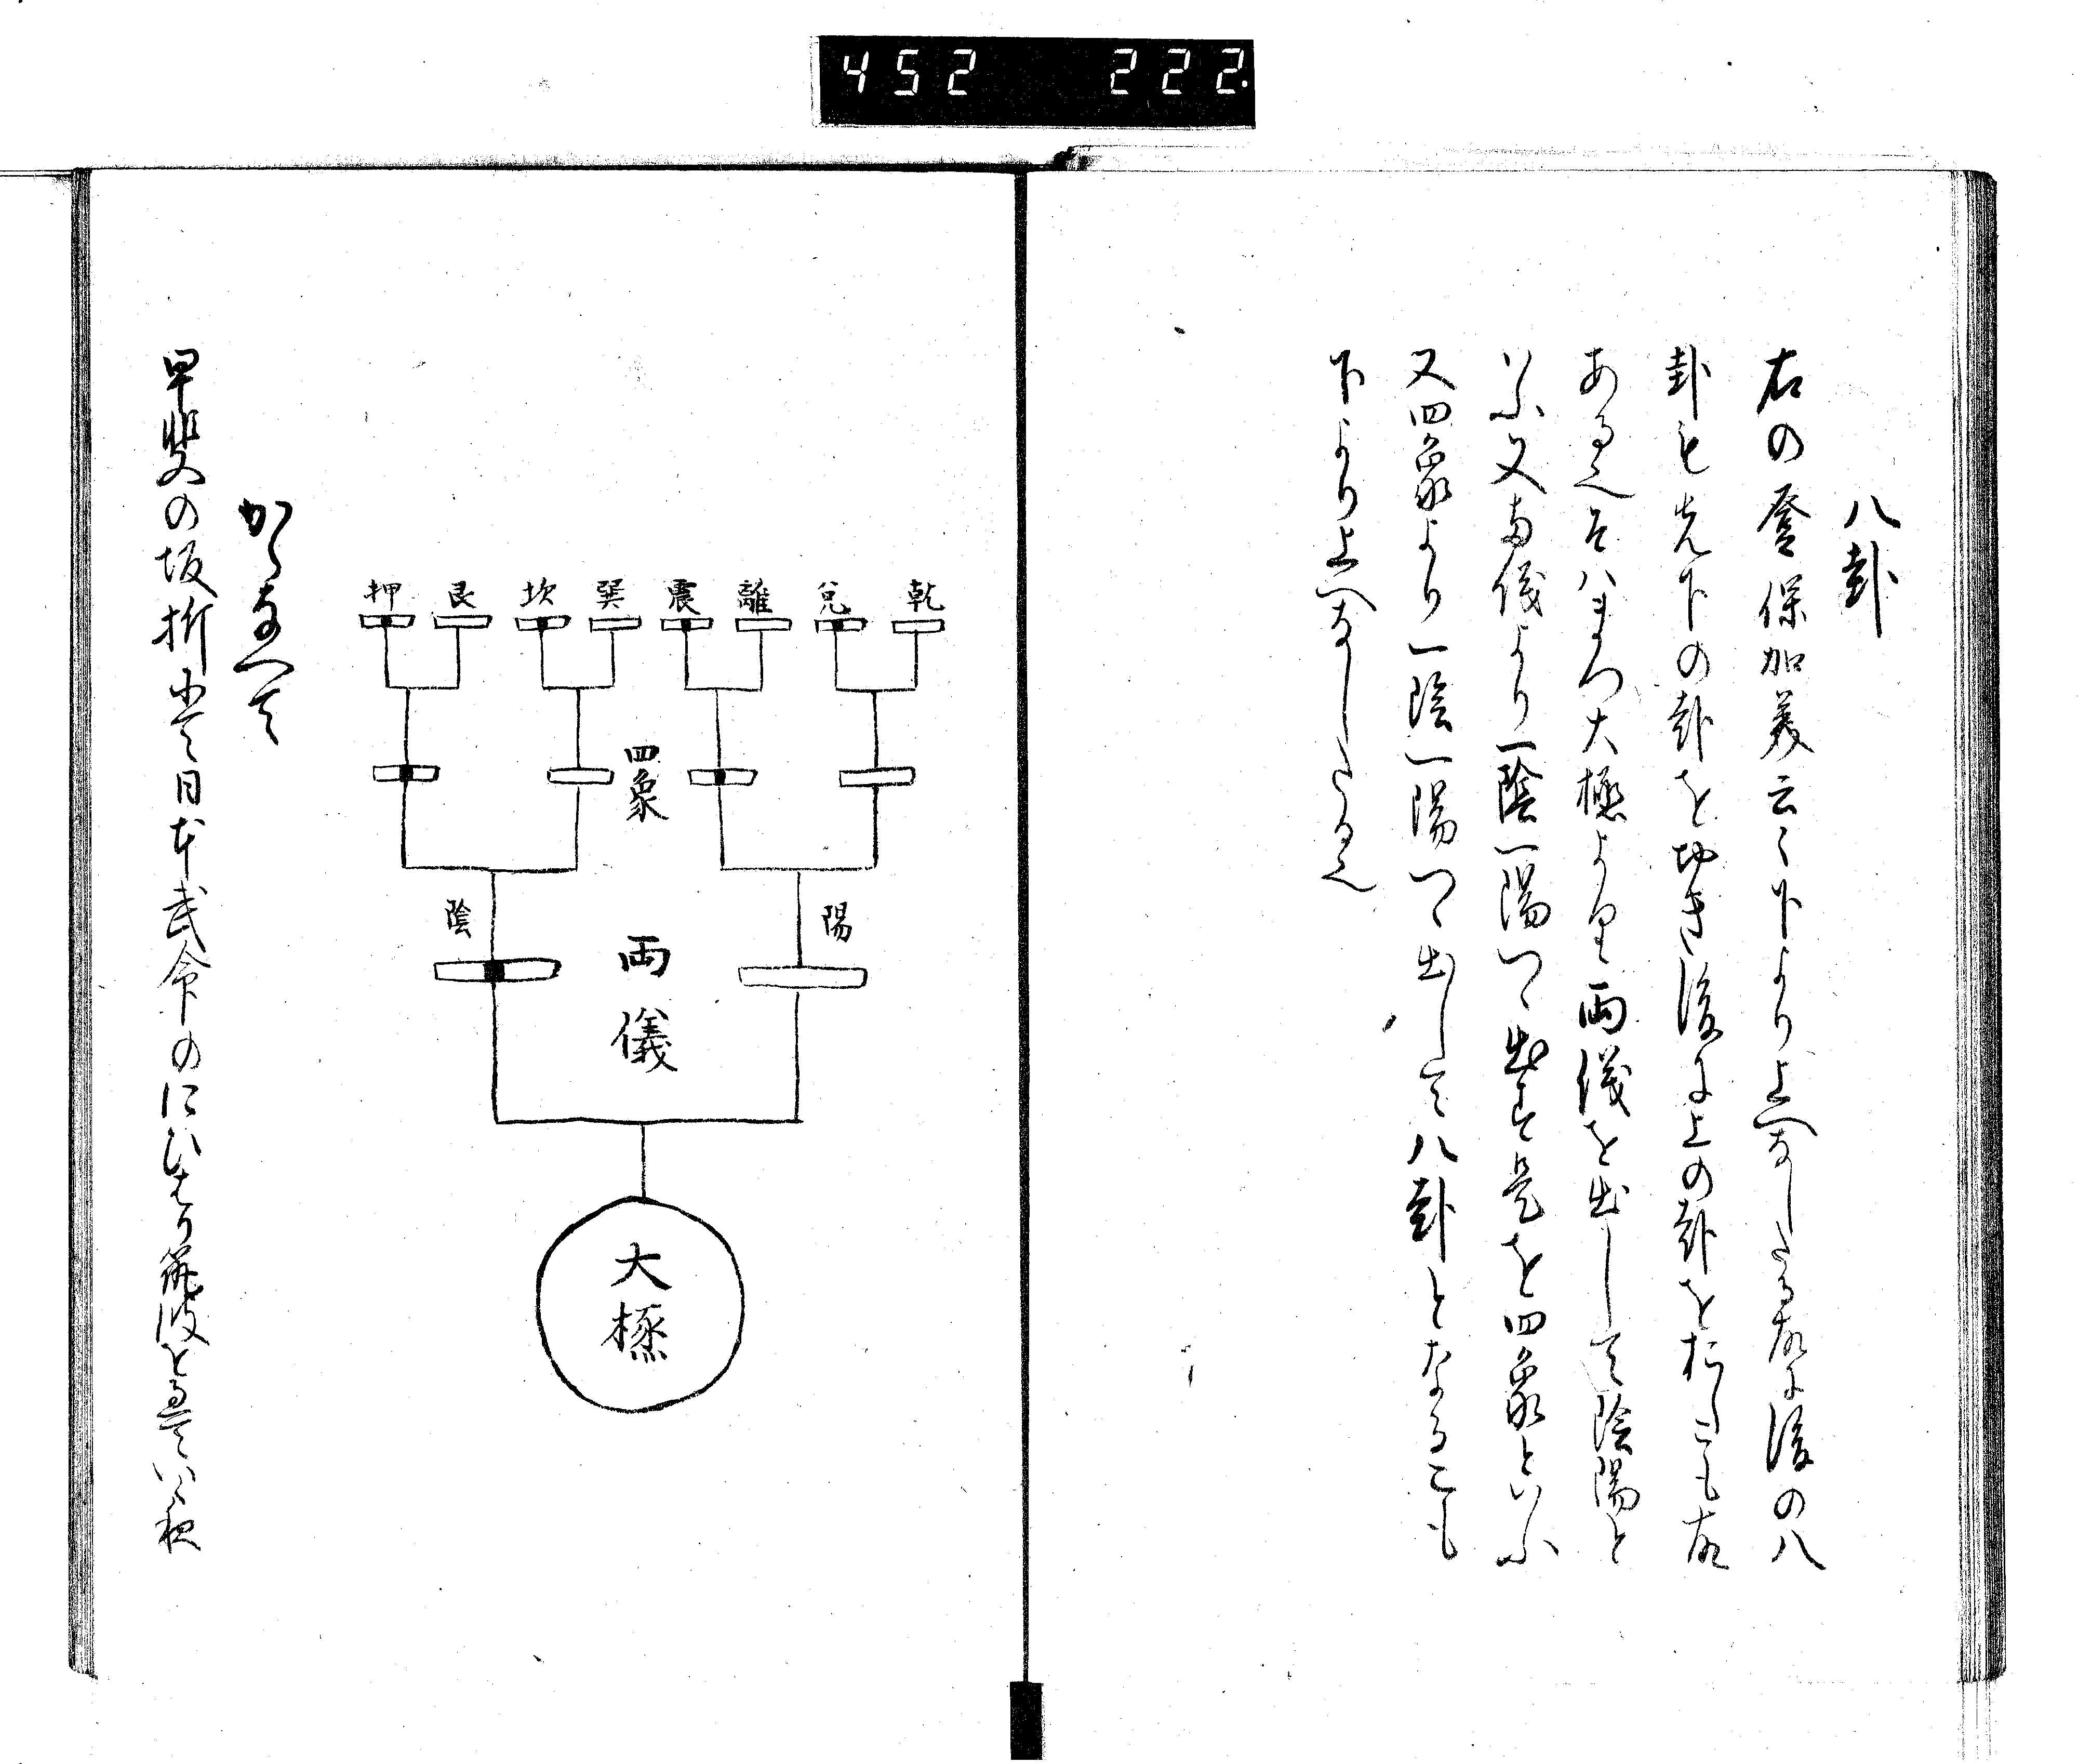 452 222.
八卦
右の登保加美云々下より上へなしたる故に後の八
卦も先下の卦を置き後に上の卦をおくことも故
ある也そはまつ大極より両儀を出しして陰陽と
いふ又両儀より一陰一陽つゝ出す是を四象といふ
又四象より一陰一陽つゝ出して八卦となることも
下より上へなしたる也
乾 兌 離 震 巽 坎 艮 押
四象
陽 陰
両儀
大極
かゝなへて
の坂折にて日本武命のにひはり筑波をるていく夜